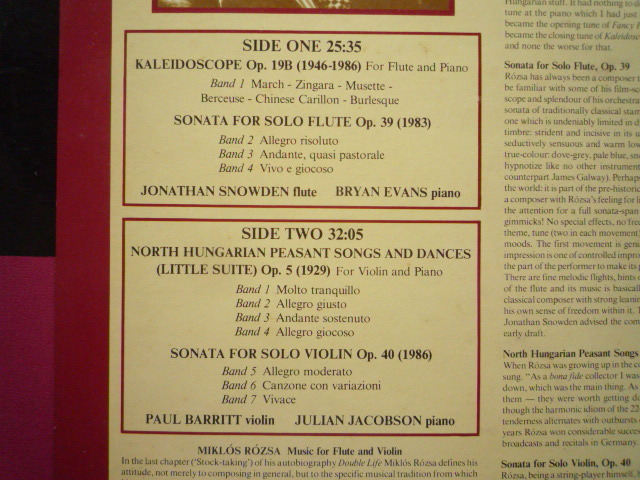 SIDE ONE 25:35
KALEIDOSCOPE Op. 19B (1946-1986) For Flute and Piano
Band 1 March - Zingara - Musette -
Berceuse - Chinese Carillon - Burlesque
SONATA FOR SOLO FLUTE Op. 39 (1983)
Band 2 Allegro risoluto
Band 3 Andante, quasi pastorale
Band 4 Vivo e giocoso
JONATHAN SNOWDEN flute BRYAN EVANS piano
SIDE TWO 32:05
NORTH HUNGARIAN PEASANT SONGS AND DANCES
(LITTLE SUITE) Op. 5 (1929) For Violin and Piano
Band 1 Molto tranquillo
Band 2 Allegro giusto
Band 3 Andante sostenuto
Band 4 Allegro giocoso
SONATA FOR SOLO VIOLIN Op. 40 (1986)
Band 5 Allegro moderato
Band 6 Canzone con variazioni
Band 7 Vivace
PAUL BARRITT violin JULIAN JACOBSON piano
MIKLÓS RÓZSA Music for Flute and Violin
In the last chapter ('Stock-taking') of his autobiography Double Life Miklós Rózsa defines his
attitude, not merely to composing in general, but to the specific musical tradition from which
Hungarian stuff. It had nothing to d
tune at the piano which I had just
became the opening tune of Fancy
became the closing tune of Kaleidosc
and none the worse for that.
Sonata for Solo Flute, Op. 39
Rózsa has always been a composer
be familiar with some of his film-sc
scope and splendour of his orchestra
sonata of traditionally classical stam
one which is undeniably limited in d
timbre: strident and incisive in its u
seductively sensuous and warm low
true-colour: dove-grey, pale blue, sno
hypnotize like no other instrument
counterpart James Galway). Perhap
the world: it is part of the pre-historic
a composer with Rózsa's feeling for li
the attention for a full sonata-span
gimmicks! No special effects, no fre
theme, tune (two in each movement)
moods. The first movement is gen
impression is one of controlled impro
the part of the performer to make its p
There are fine melodic flights, hints o
of the flute and its music is basical
classical composer with strong leanin
his own sense of freedom within it. T
Jonathan Snowden advised the com
early draft.
North Hungarian Peasant Songs
When Rózsa was growing up in the co
sung. "As a bona fide collector I was
down, which was the main thing. As
them — they were worth getting do
though the harmonic idiom of the 22
tenderness alternates with outbursts
years Rózsa won considerable succes
broadcasts and recitals in Germany.
Sonata for Solo Violin, Op. 40
Rózsa, being a string-player himself,